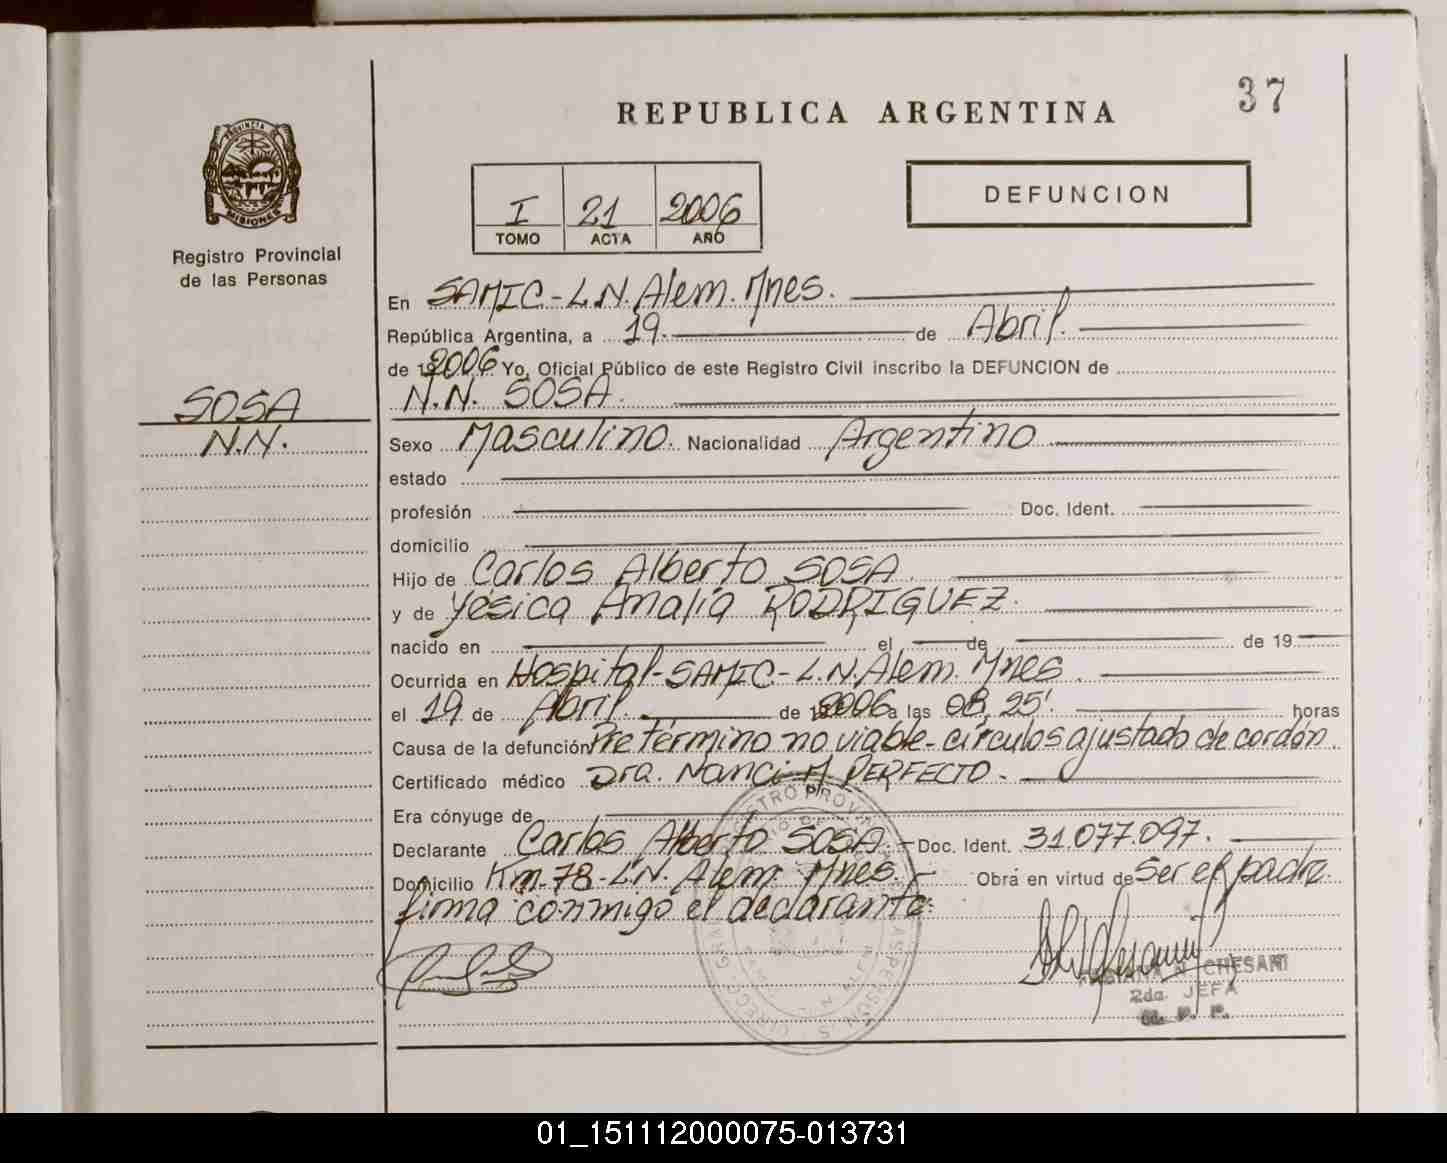 37
REPUBLICA ARGENTINA
PROVINCIA DE
MISIONES
Registro Provincial
de las Personas
I 21 2006
TOMO ACTA AÑO
DEFUNCION
En SAMIC-L.N.Alem.Mnes.
República Argentina, a 19. de Abril.
de 192006 Yo, Oficial Público de este Registro Civil inscribo la DEFUNCION de
N.N. SOSA.
SOSA
N.N.
Sexo Masculino. Nacionalidad Argentino
estado
profesión Doc. Ident.
domicilio
Hijo de Carlos Alberto SOSA.
y de Yésica Analía RODRIGUEZ.
nacido en el de de 19
Ocurrida en Hospital-SAMIC-L.N.Alem.Mnes.
el 19 de Abril. de 192006 a las 08,25' horas
Causa de la defunción Pretérmino no viable-círculos ajustado de cordón.
Certificado médico Dra. Nanci M PERFECTO.
Era cónyuge de
Declarante Carlos Alberto SOSA.- Doc. Ident. 31.077.097.
Domicilio Km-78-L.N. Alem. Mnes.- Obra en virtud de Ser el padre.
firma conmigo el declarante:
N. CHESANI
2da. JEFA
01_151112000075-013731